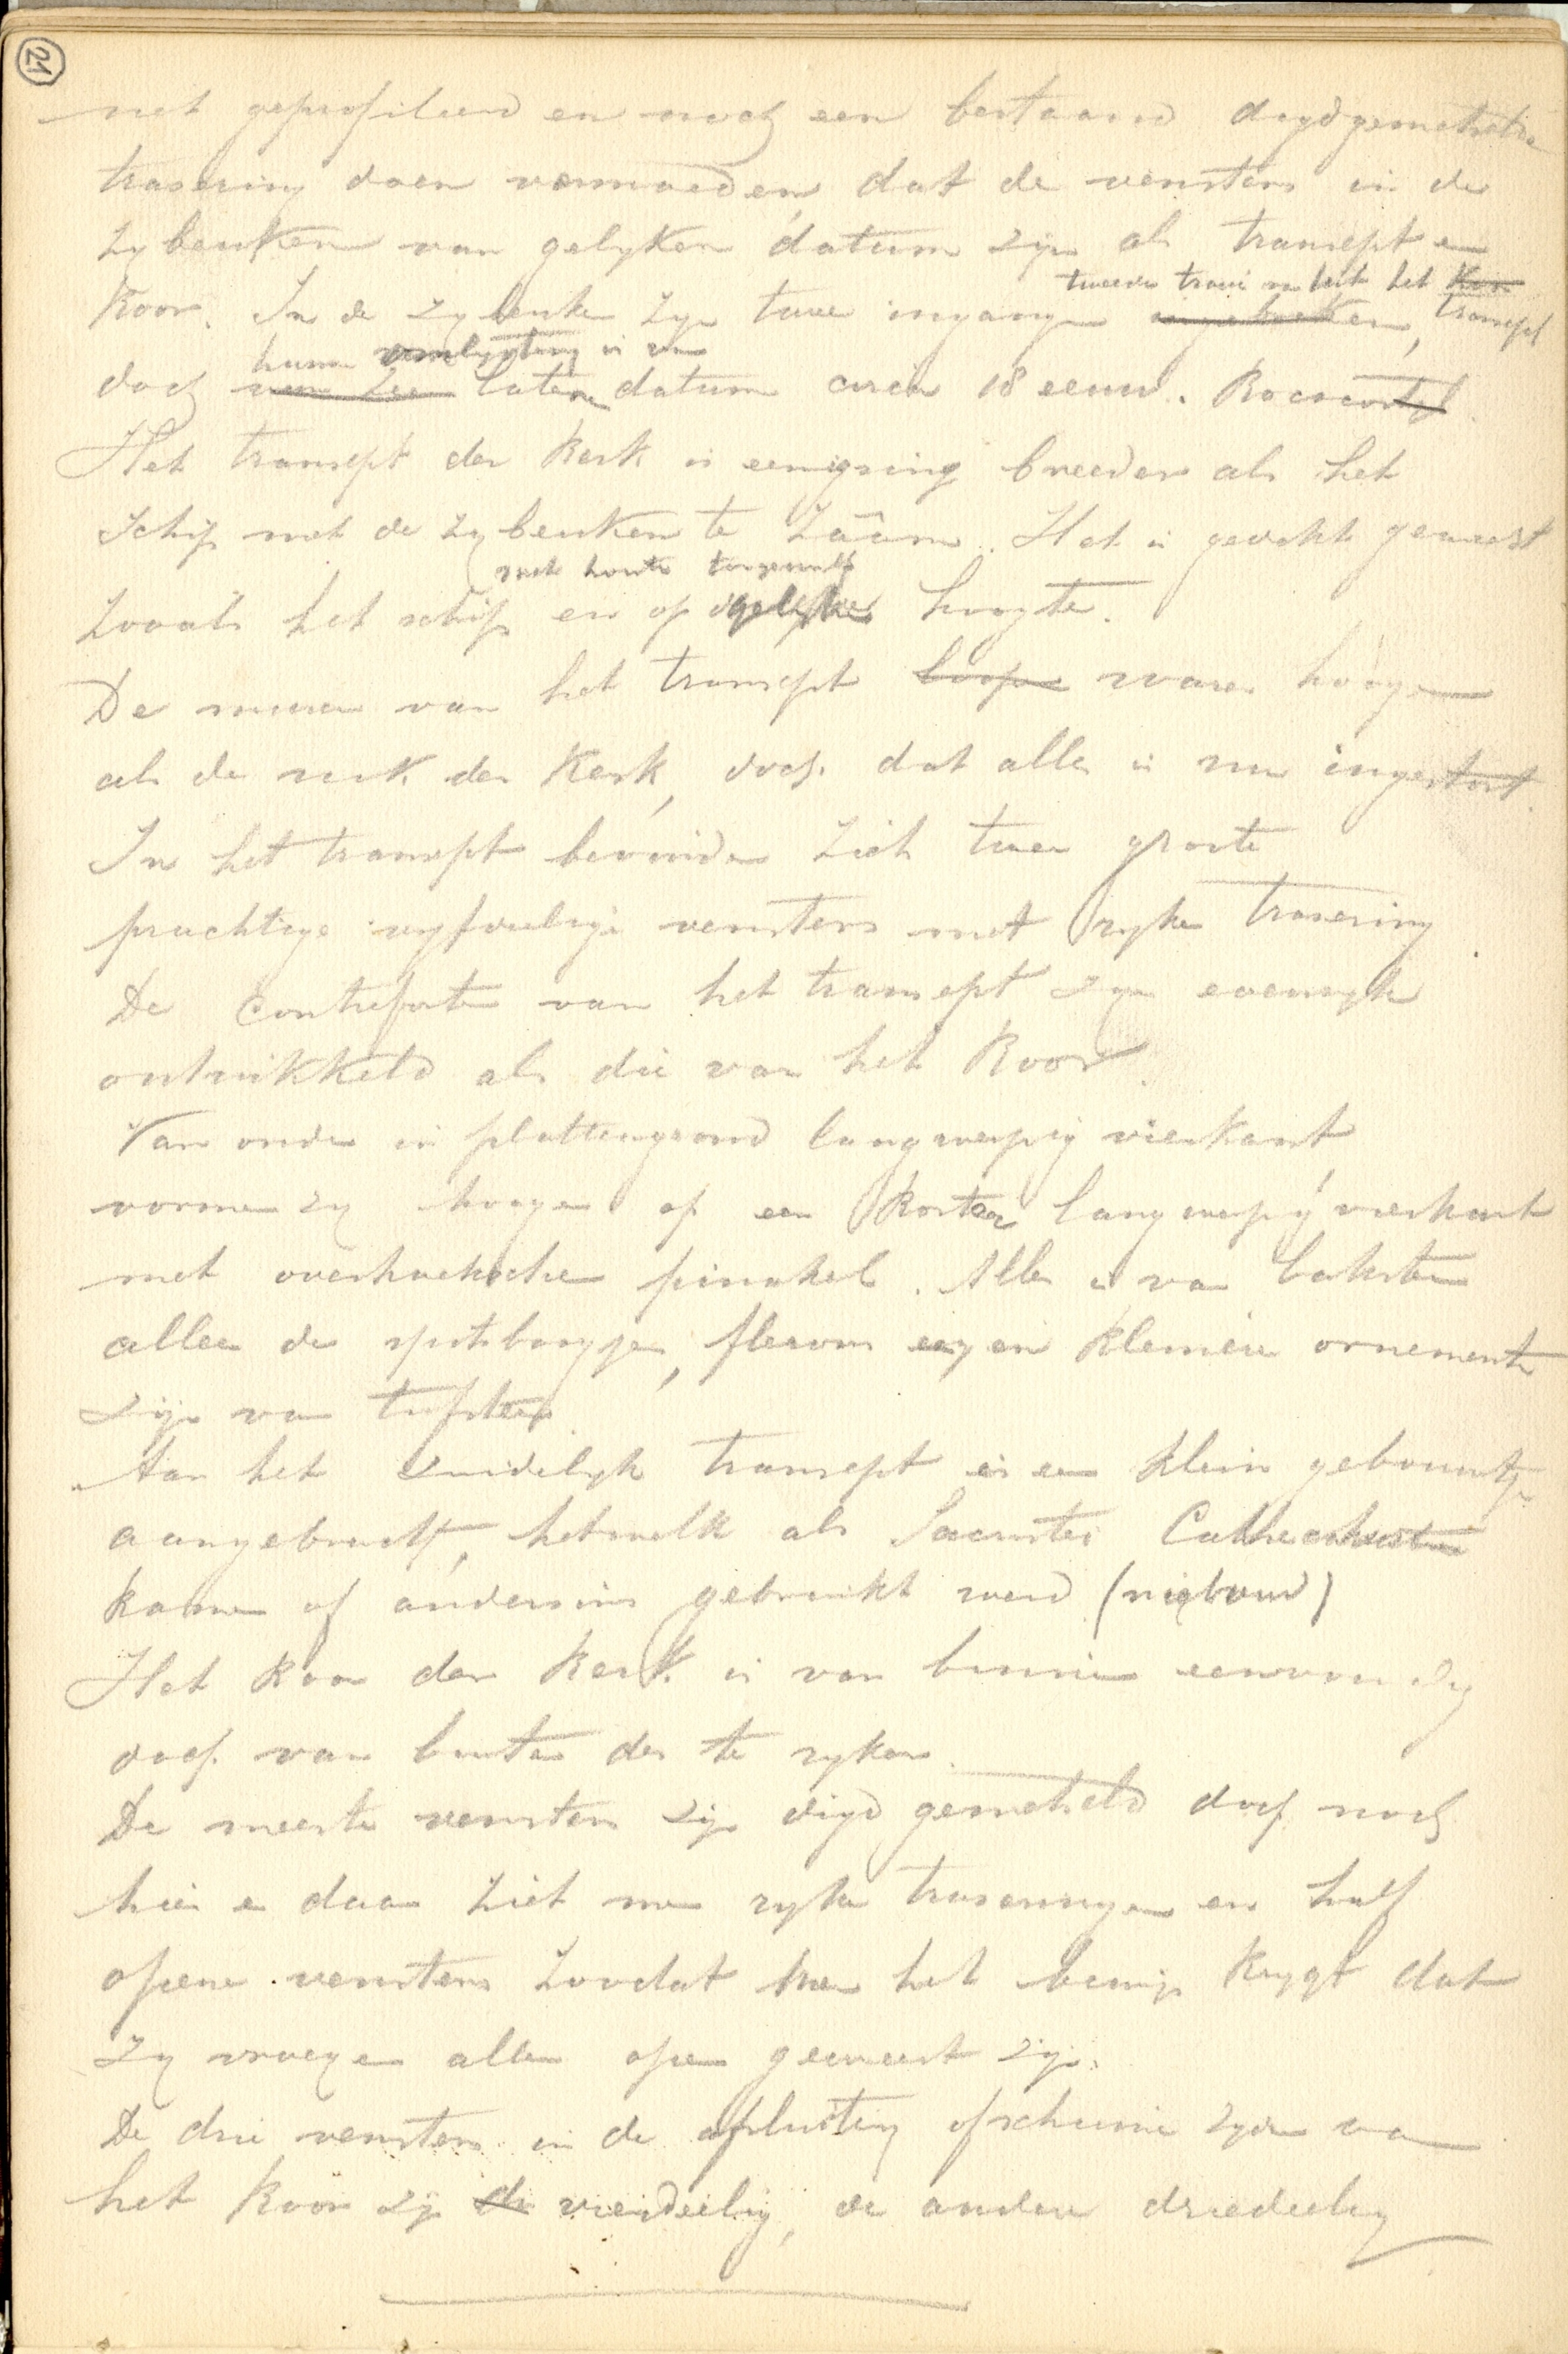 21
net geprofileerd en nog een bestaand digdgemetselde
trasering doen vermoeden, dat de vensters in de
zybeuken van gelyken datum zyn als transept en
tweede travé van uit het Koor
Koor. In de zybeuken zyn twee ingangen ingebroken, transept
hunne omlysting is van
doch van zeer lateren datum circa 18 eeuw. Rococostyl.
Het transept der Kerk is eenigzins breeder als het
schip met de zybeuken te zaâm. Het is gedekt geweest
met houten tongewelf
zooals het schip en op gelyke hoogte.
De muren van het transept loopen waren hooger
als de rest der Kerk, doch dat alles is nu ingestort.
In het transept bevinden zich twee groote
prachtige vyfdeelige vensters met ryke trasering.
De contreforten van het transept zyn even ryk
ontwikkeld als die van het Koor.
Van onder in plattengrond langwerpig vierkant
vormen zy hooger op een korter langwerpig vierkant
met overhoeksche pinakel. Alles is van baksteen
alleen de spitsboogjes, fleurons en kleinere ornementen
zyn van tufsteen.
Aan het zuidelyk transept is een klein gebouwtje
aangebracht, hetwelk als Sacristei Cathechisatie
kamer of anderzins gebruikt werd (nieuwbouw)
Het koor der Kerk is van binnen eenvoudig
doch van buiten des te ryker.
De meeste vensters zyn digd gemetseld doch nog
hier en daar ziet men ryke traseringen en half
opene vensters zoodat men het bewys krygt dat
zy vroeger allen open geweest zyn.
De drie vensters in de afsluiting of schuine zyden van
het koor zyn de vierdeelig, de andere driedeelig